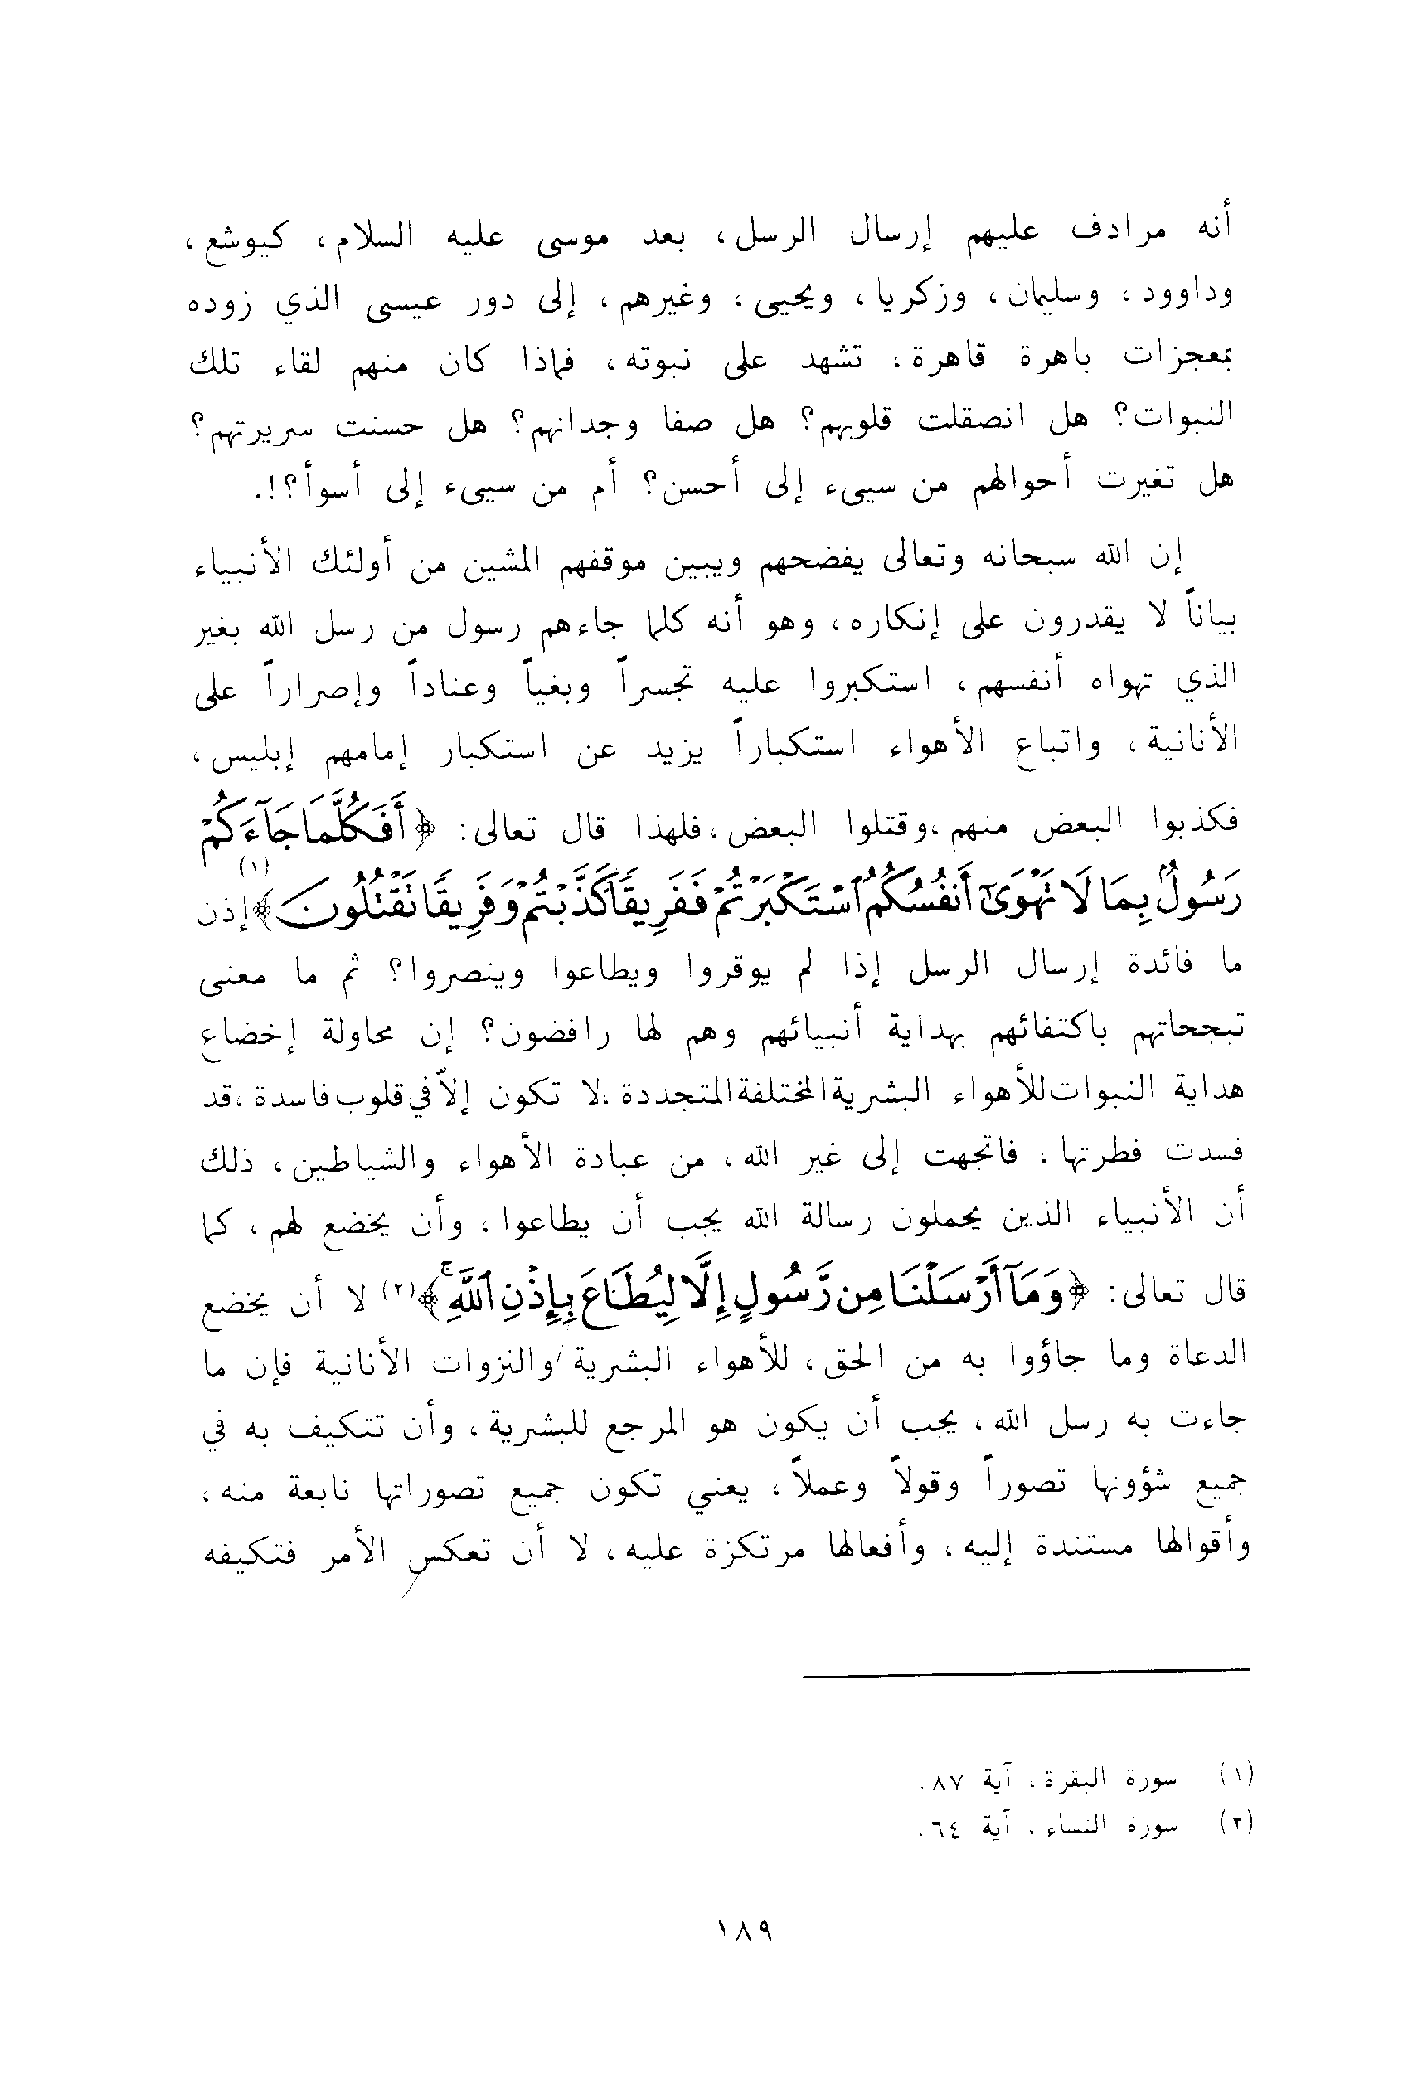 أنه مرادف عليهم إرسال الرسل، بعد موسى عليه السلام، كيوشع،
وداوود، وسليمان، وزكريا، ويحيى، وغيرهم، إلى دور عيسى الذي زوده
بمعجزات باهرة قاهرة، تشهد على نبوته، فماذا كان منهم لقاء تلك
النبوات؟ هل انصقلت قلوبهم؟ هل صفا وجدانهم؟ هل حسنت سريرتهم؟
هل تغيرت أحوالهم من سيىء إلى أحسن؟ أم من سيىء إلى أسوأ؟!.
إن الله سبحانه وتعالى يفضحهم ويبين موقفهم المشين من أولئك الأنبياء
بياناً لا يقدرون على إنكاره، وهو أنه كلما جاءهم رسول من رسل الله بغير
الذي تهواه أنفسهم، استكبروا عليه تجسراً وبغياً وعناداً وإصراراً على
الأنانية، واتباع الأهواء استكباراً يزيد عن استكبار إمامهم إبليس،
فكذبوا البعض منهم،وقتلوا البعض،فلهذا قال تعالى: ﴿أَفَكُلَّمَا جَآءَكُمْ
رَسُولٌ بِمَا لَا تَهْوَىٰٓ أَنفُسُكُمُ ٱسْتَكْبَرْتُمْ فَفَرِيقًا كَذَّبْتُمْ وَفَرِيقًا تَقْتُلُونَ﴾(١) إذن
ما فائدة إرسال الرسل إذا لم يوقروا ويطاعوا وينصروا؟ ثم ما معنى
تبجحاتهم باكتفائهم بهداية أنبيائهم وهم لها رافضون؟ إن محاولة إخضاع
هداية النبوات للأهواء البشرية المختلفة المتجددة، لا تكون إلاّ في قلوب فاسدة، قد
فسدت فطرتها، فاتجهت إلى غير الله، من عبادة الأهواء والشياطين، ذلك
أن الأنبياء الذين يحملون رسالة الله يجب أن يطاعوا، وأن يخضع لهم، كما
قال تعالى: ﴿وَمَآ أَرْسَلْنَا مِن رَّسُولٍ إِلَّا لِيُطَاعَ بِإِذْنِ ٱللَّهِۚ﴾(٢) لا أن يخضع
الدعاة وما جاؤوا به من الحق، للأهواء البشرية والنزوات الأنانية فإن ما
جاءت به رسل الله، يجب أن يكون هو المرجع للبشرية، وأن تتكيف به في
جميع شؤونها تصوراً وقولاً وعملاً، يعني تكون جميع تصوراتها نابعة منه،
وأقوالها مستندة إليه، وأفعالها مرتكزة عليه، لا أن تعكس الأمر فتكيفه
(١) سورة البقرة، آية ٨٧.
(٢) سورة النساء، آية ٦٤.
١٨٩